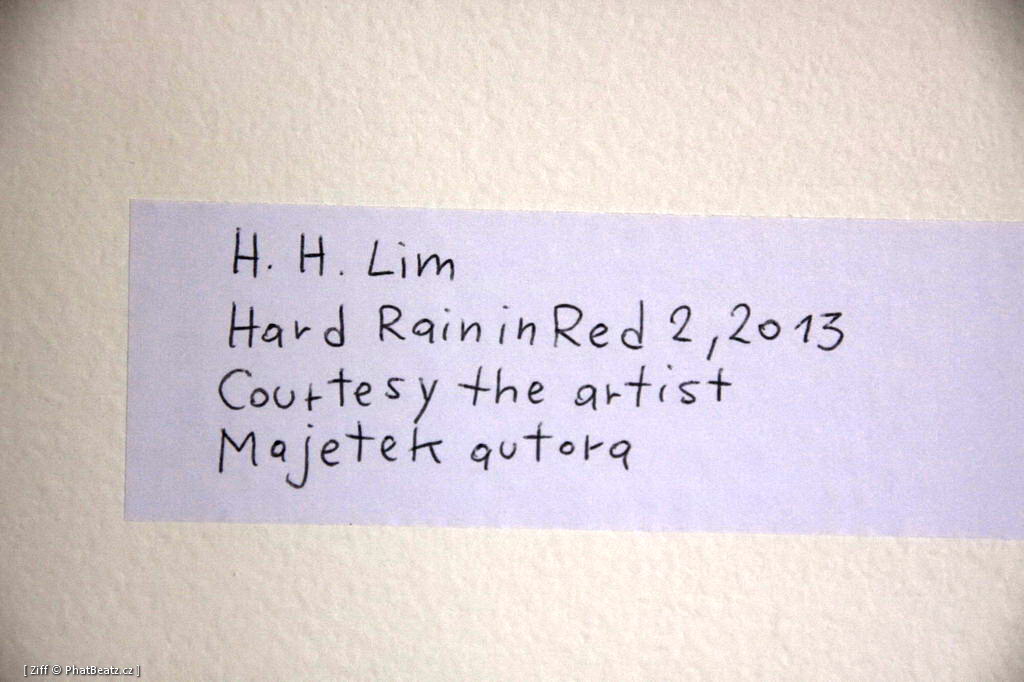 H. H. Lim
Hard Rain in Red 2, 2013
Courtesy the artist
Majetek autora
[ Ziff © PhatBeatz.cz ]